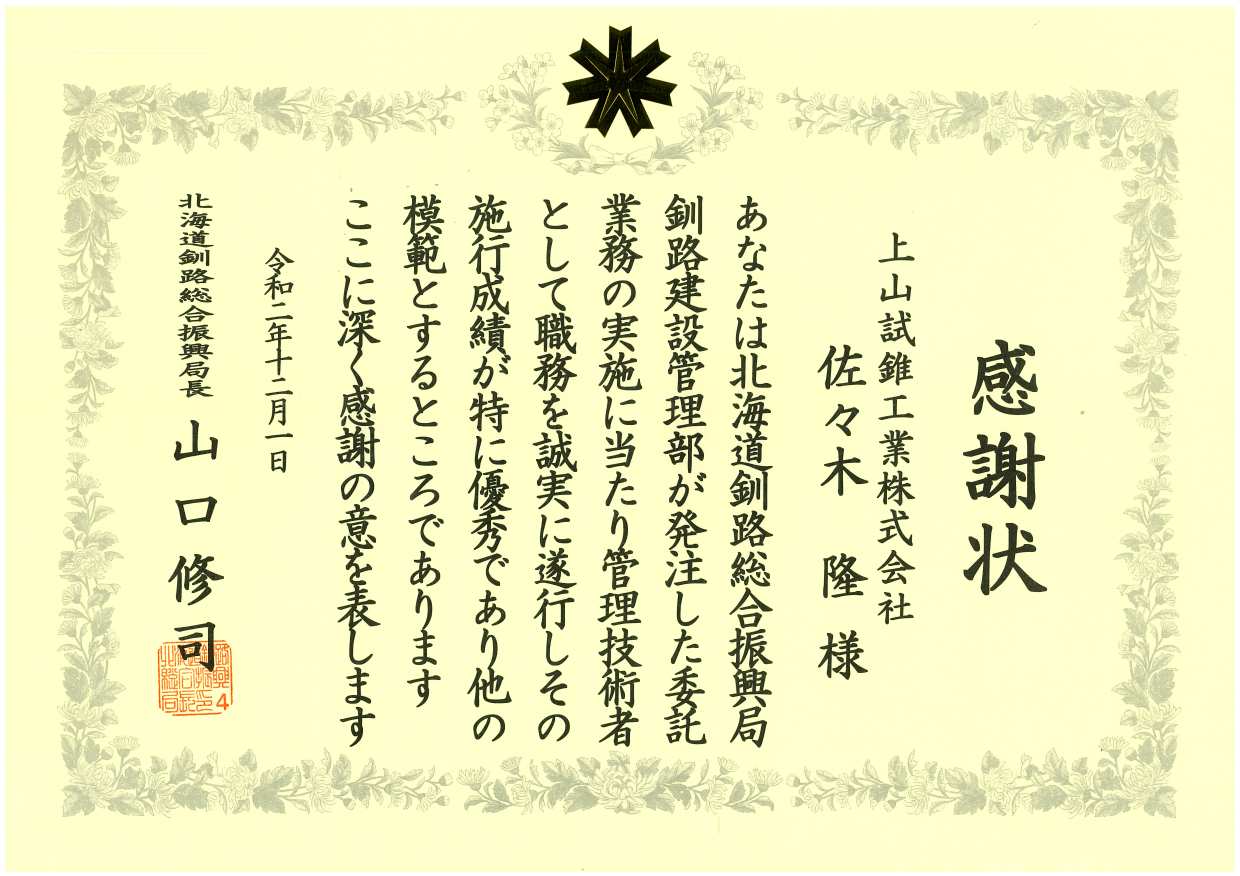 感謝状
上山試錐工業株式会社
佐々木 隆 様
あなたは北海道釧路総合振興局
釧路建設管理部が発注した委託
業務の実施に当たり管理技術者
として職務を誠実に遂行しその
施行成績が特に優秀であり他の
模範とするところであります
ここに深く感謝の意を表します
令和二年十二月一日
北海道釧路総合振興局長 山口修司